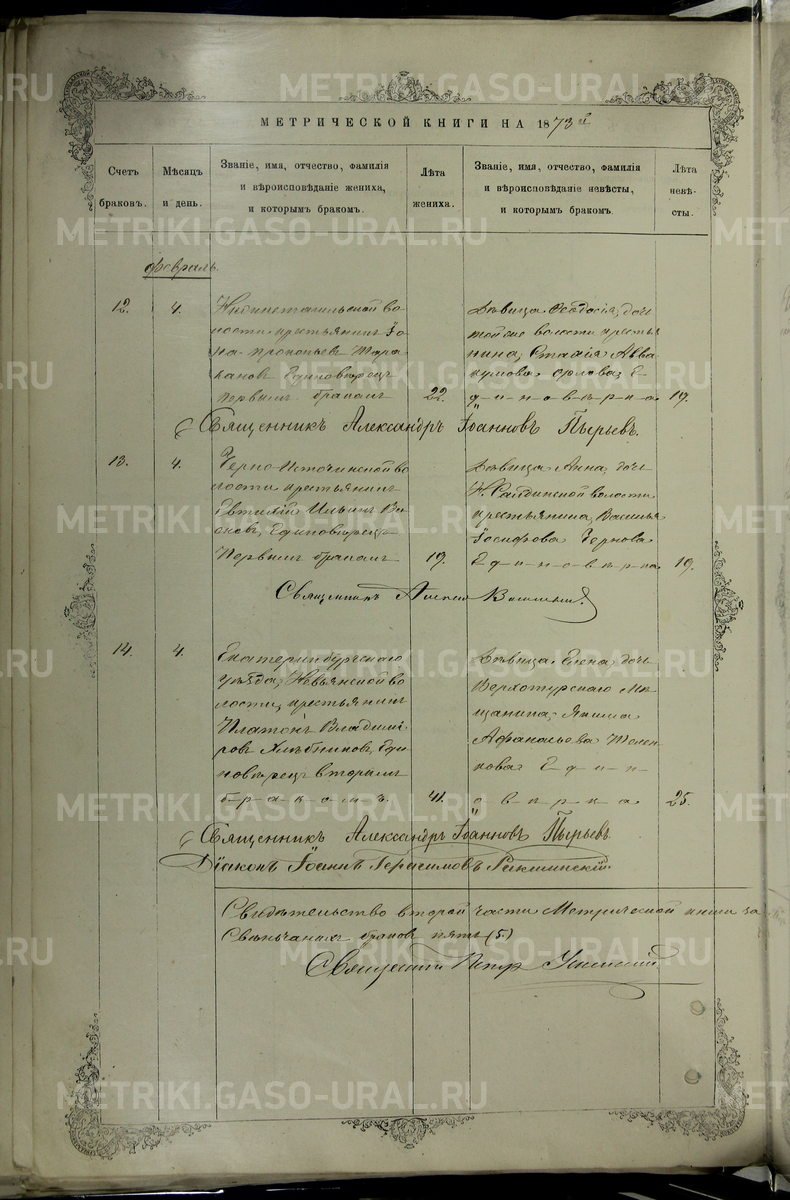 МЕТРИЧЕСКОЙ КНИГИ НА 1873й
Счетъ
браковъ.
Мѣсяцъ
и день.
Званіе, имя, отчество, фамилія
и вѣроисповѣданіе жениха,
и которымъ бракомъ.
Лѣта
жениха.
Званіе, имя, отчество, фамилія
и вѣроисповѣданіе невѣсты,
и которымъ бракомъ.
Лѣта
невѣ-
сты.
Февраль.
12.
4.
Нижнетагильской во
лости крестьянинъ Іо
на Прокопьевъ Тара
кановъ Единовѣрецъ
первымъ бракомъ
22.
Дѣвица Ѳеодосія, дочь
той же волости крестья
нина, Авва
кумова Орлова, Е
д-и-н-о-в-ѣ-р-к-а.
19.
Священникъ Александръ Іоанновъ Пырьевъ.
13.
4.
Черно-Источинской во
лости крестьянинъ
Евтихій Ильинъ
Единовѣрецъ
Первымъ бракомъ
19.
Дѣвица Анна, дочь
Н. Салдинской волости
крестьянина, Василья
Іосифова Чернова
Е д-и-н-о-в-ѣ-р-к-а
19.
Священникъ
14.
4.
Екатеринбургскаго
уѣзда, Невьянской во
лости, крестьянинъ
Платонъ Владимі
ровъ Хлѣбниковъ, Еди
новѣрецъ вторымъ
б-р-а-к-о-м-ъ.
41.
Дѣвица Елена дочь
Верхотурскаго Мѣ
щанина, Якима
Афанасьева
Е д-и-н-
о-в-ѣ-р-к-а
25.
Священникъ Александръ Іоанновъ Пырьевъ
Діаконъ Іоаннъ Герасимовъ
Свидѣтельство второй части Метрической книги за
бракомъ пять (5)
Священникъ Петр
METRIKI.GASO-URAL.RU